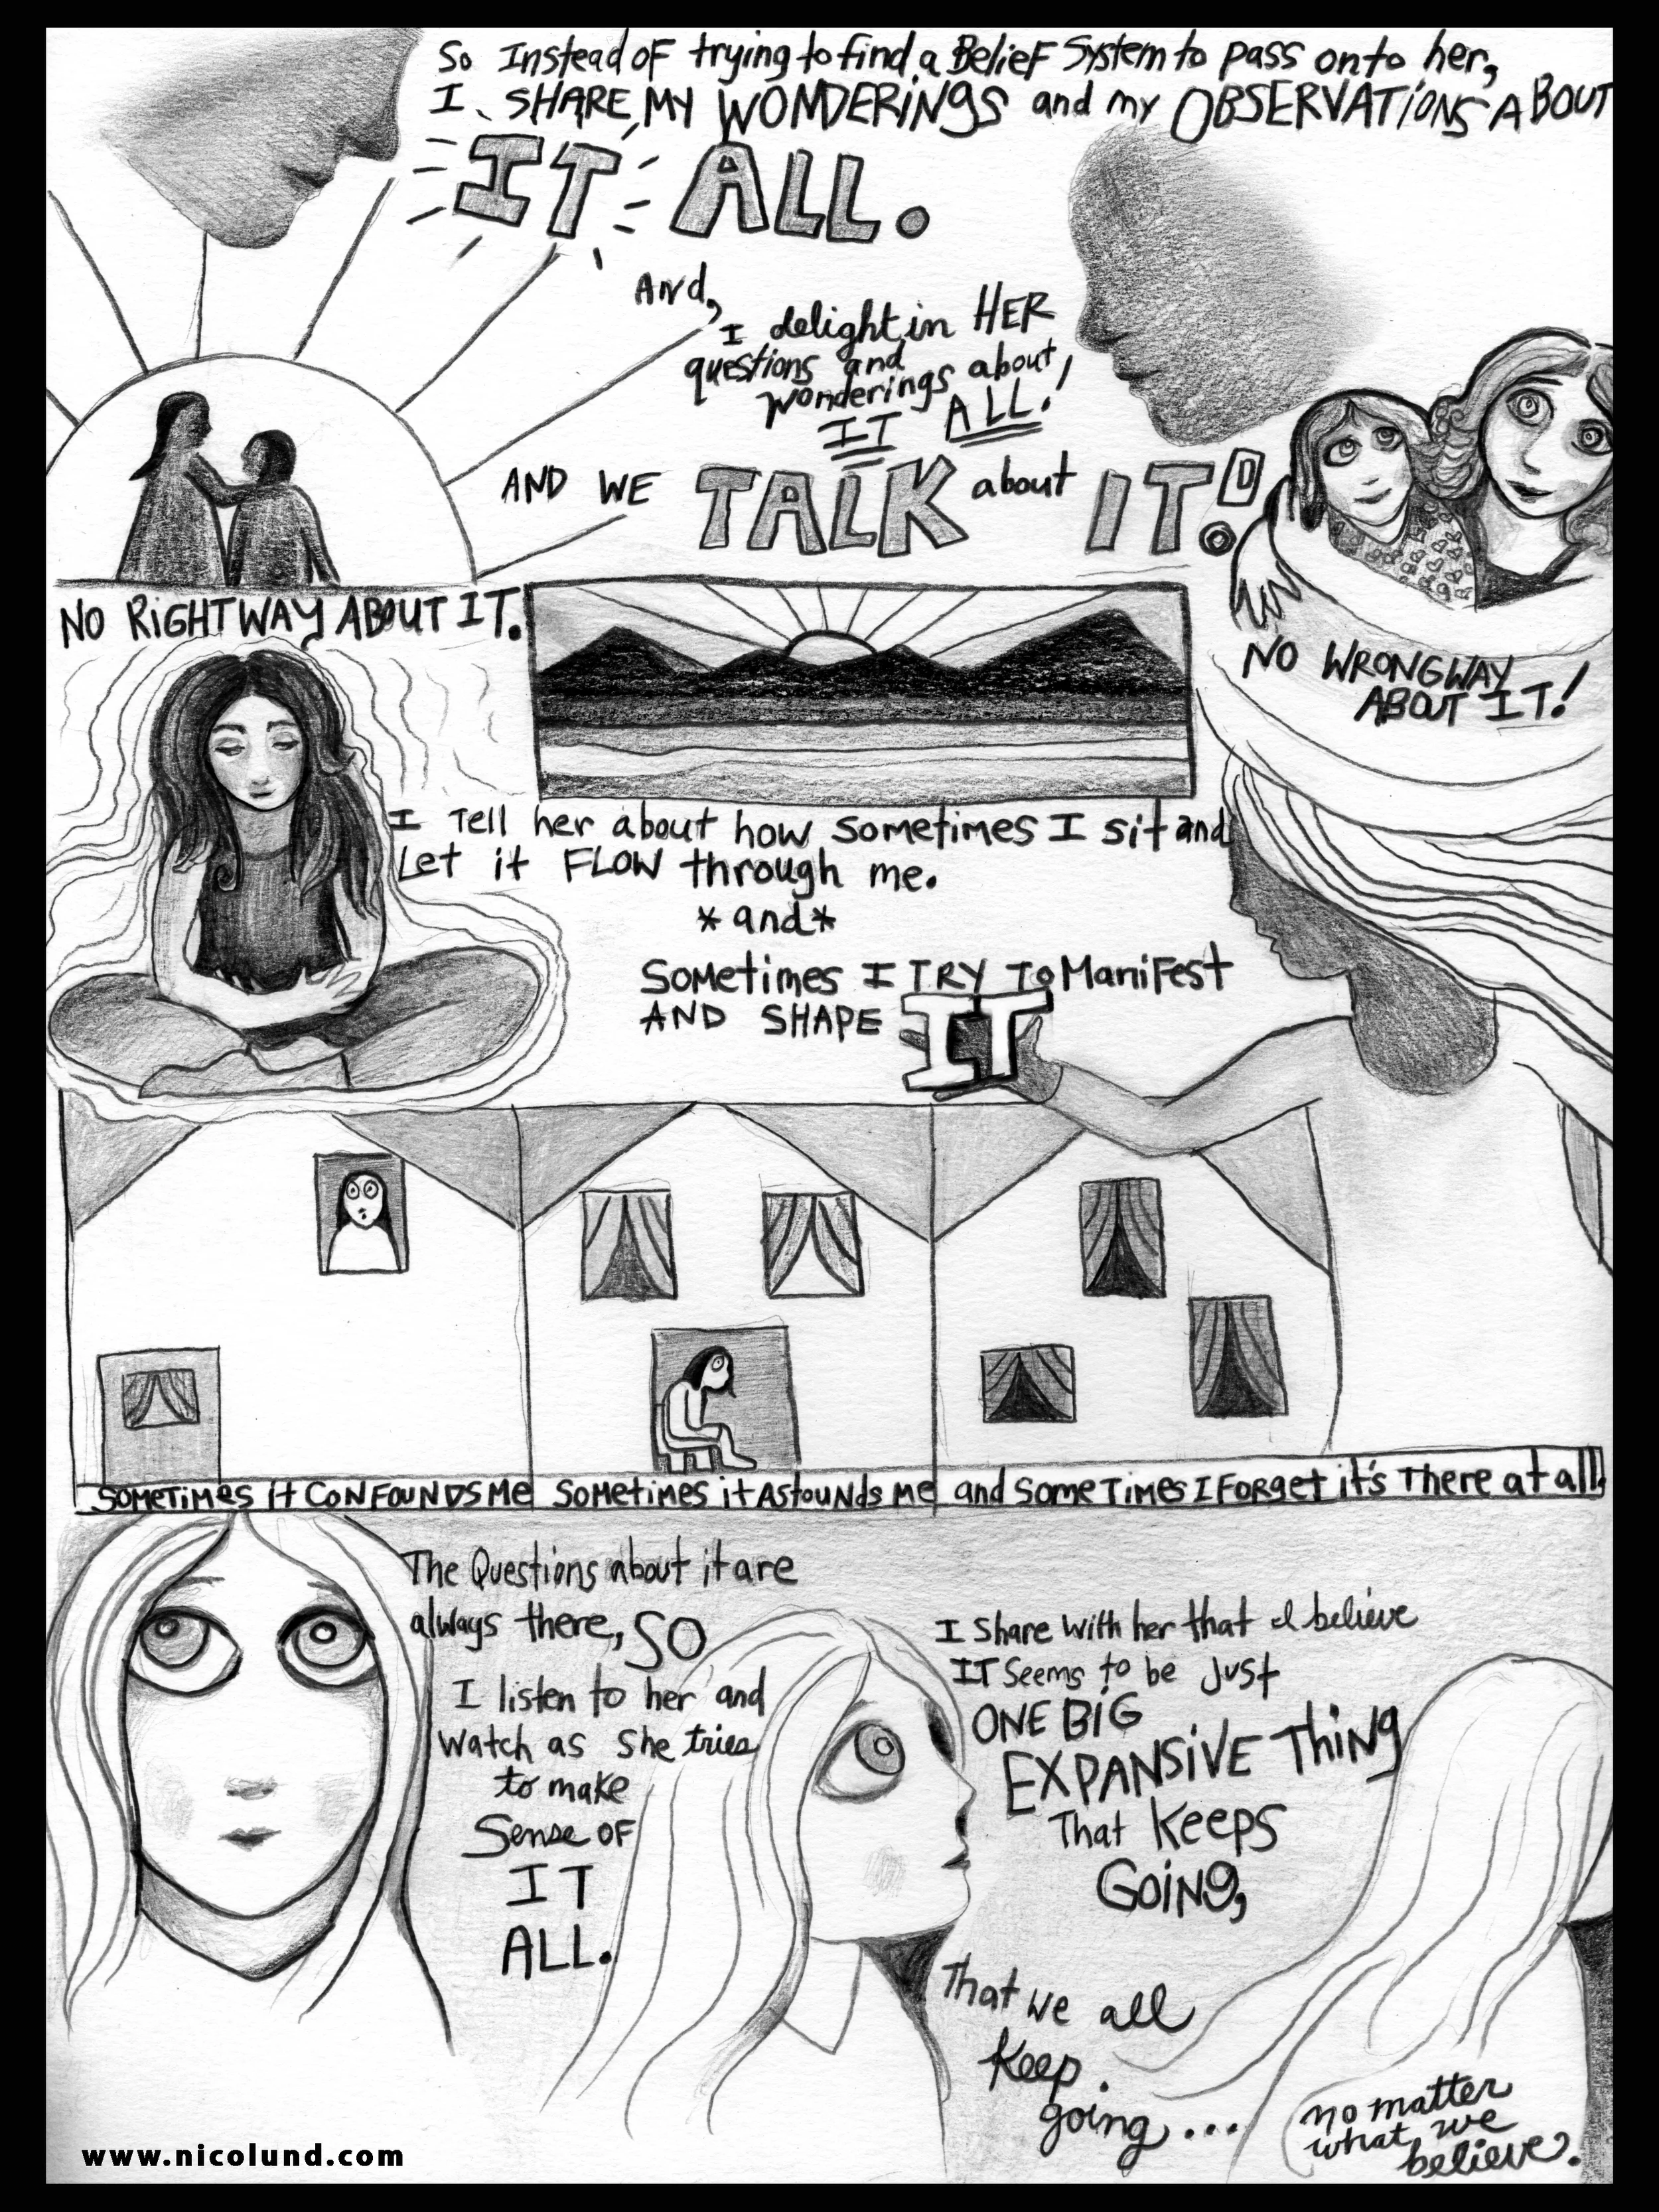 So Instead of trying to find a Belief System to pass onto her,
I SHARE MY WONDERINGS and my OBSERVATIONS ABOUT
IT ALL.
And,
I delight in HER
questions and
wonderings about
IT ALL!
AND WE TALK about IT.!
NO RIGHT WAY ABOUT IT.
NO WRONG WAY
ABOUT IT!
I Tell her about how sometimes I sit and
Let it FLOW through me.
*and*
Sometimes I TRY To Manifest
AND SHAPE IT
SOMETIMES it CONFOUNDS ME
Sometimes it AStouNds Me
and SomeTimes I Forget it's There at all.
The Questions about it are
always there, SO
I listen to her and
watch as she tries
to make
Sense OF
IT
ALL.
I share with her that I believe
IT seems to be just
ONE BIG
EXPANSIVE Thing
That Keeps
Going,
That we all
Keep
going...
no matter
what we
believe.
www.nicolund.com